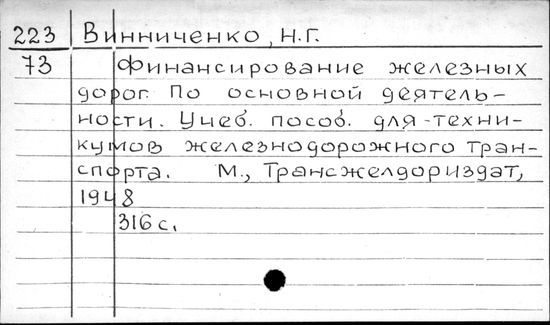 223 Винниченко, Н.Г.
73 Финансирование железных
дорог. По основной деятель-
ности. Учеб. пособ. для техни-
кумов железнодорожного тран-
спорта. М., Трансжелдориздат,
1948
316 с.